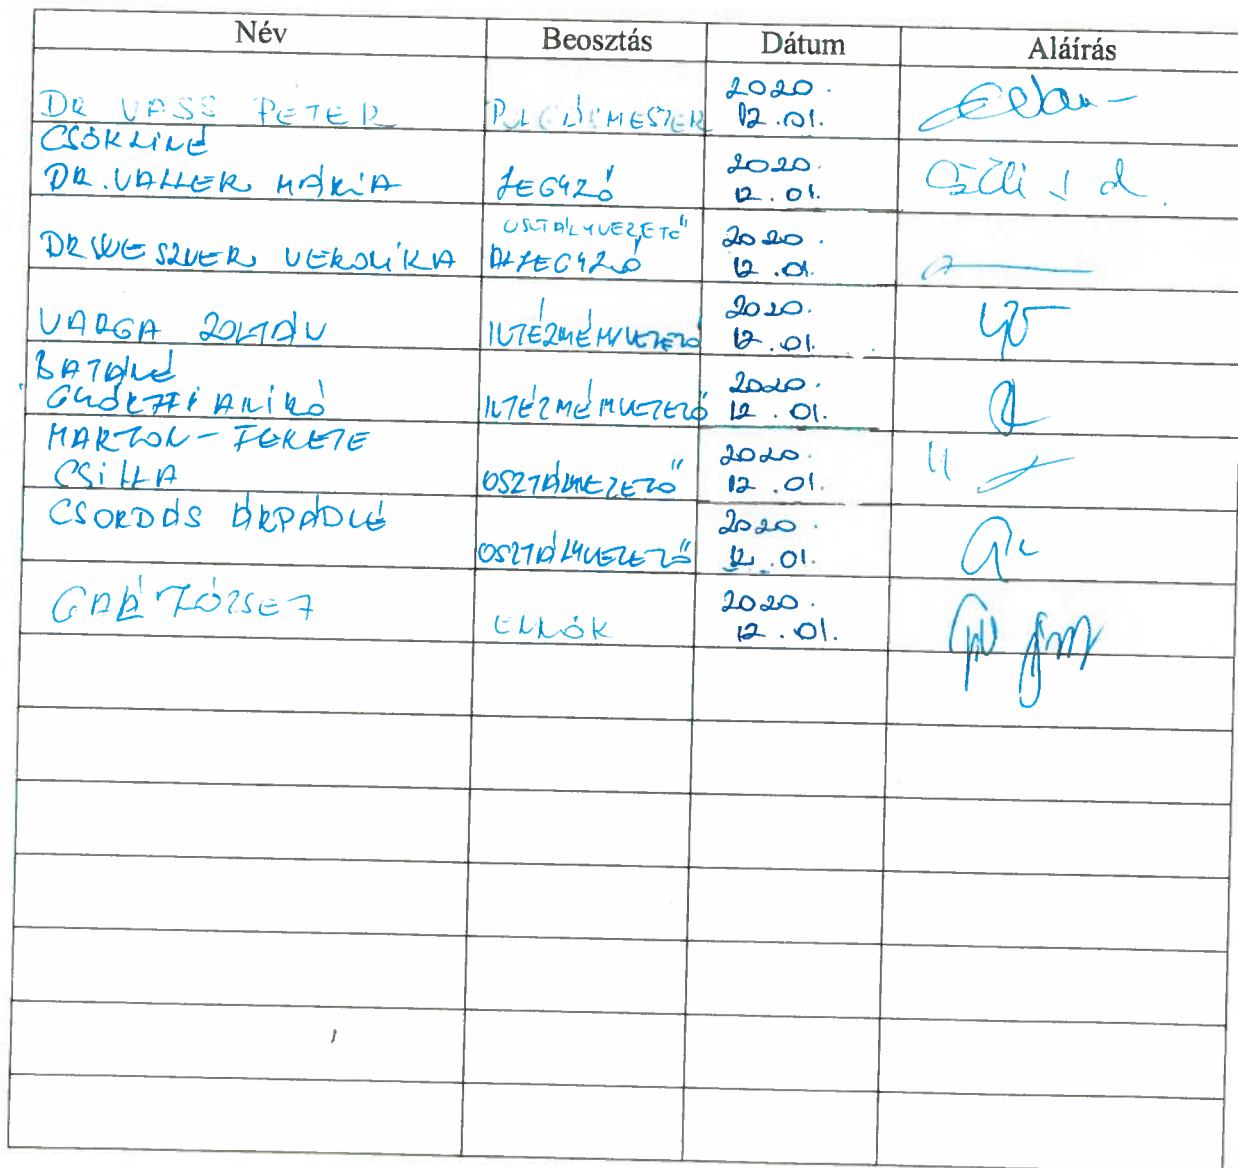 Név Beosztás Dátum Aláírás
DR VASS PÉTER POLGÁRMESTER 2020. 12.01.
CSÖKLINÉ
DR. VALLER MÁRIA JEGYZŐ 2020. 12.01.
OSZTÁLYVEZETŐ
DR WESZNER VERONIKA ALJEGYZŐ 2020. 12.01.
VARGA ZOLTÁN INTÉZMÉNYVEZETŐ 2020. 12.01.
BATÁNÉ
GYÖRFFI ANIKÓ INTÉZMÉNYVEZETŐ 2020. 12.01.
MARTON-FEKETE
CSILLA OSZTÁLYVEZETŐ 2020. 12.01.
CSORDÁS ÁRPÁDNÉ
OSZTÁLYVEZETŐ 2020. 12.01.
GAÁL JÓZSEF ELNÖK 2020. 12.01.